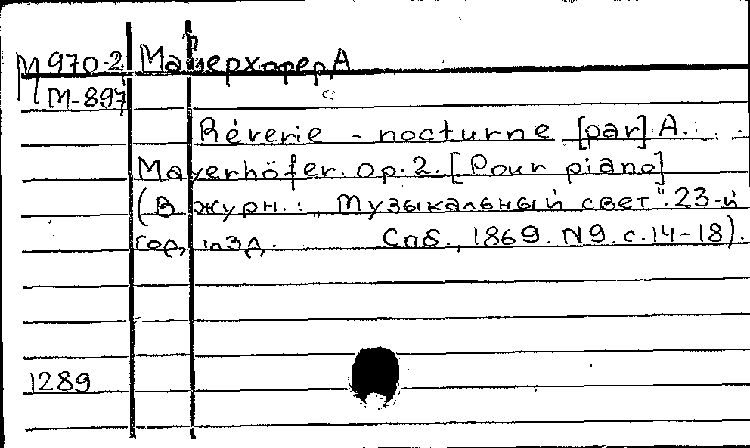 М 970-2 Майерхофер, А
М-897
Rêverie - nocturne [par] A.
Mayerhöfer. Op. 2. [Pour piano]
(В журн.: "Музыкальный свет". 23-й
год изд. Спб., 1869. N9. с. 14-18).
1289